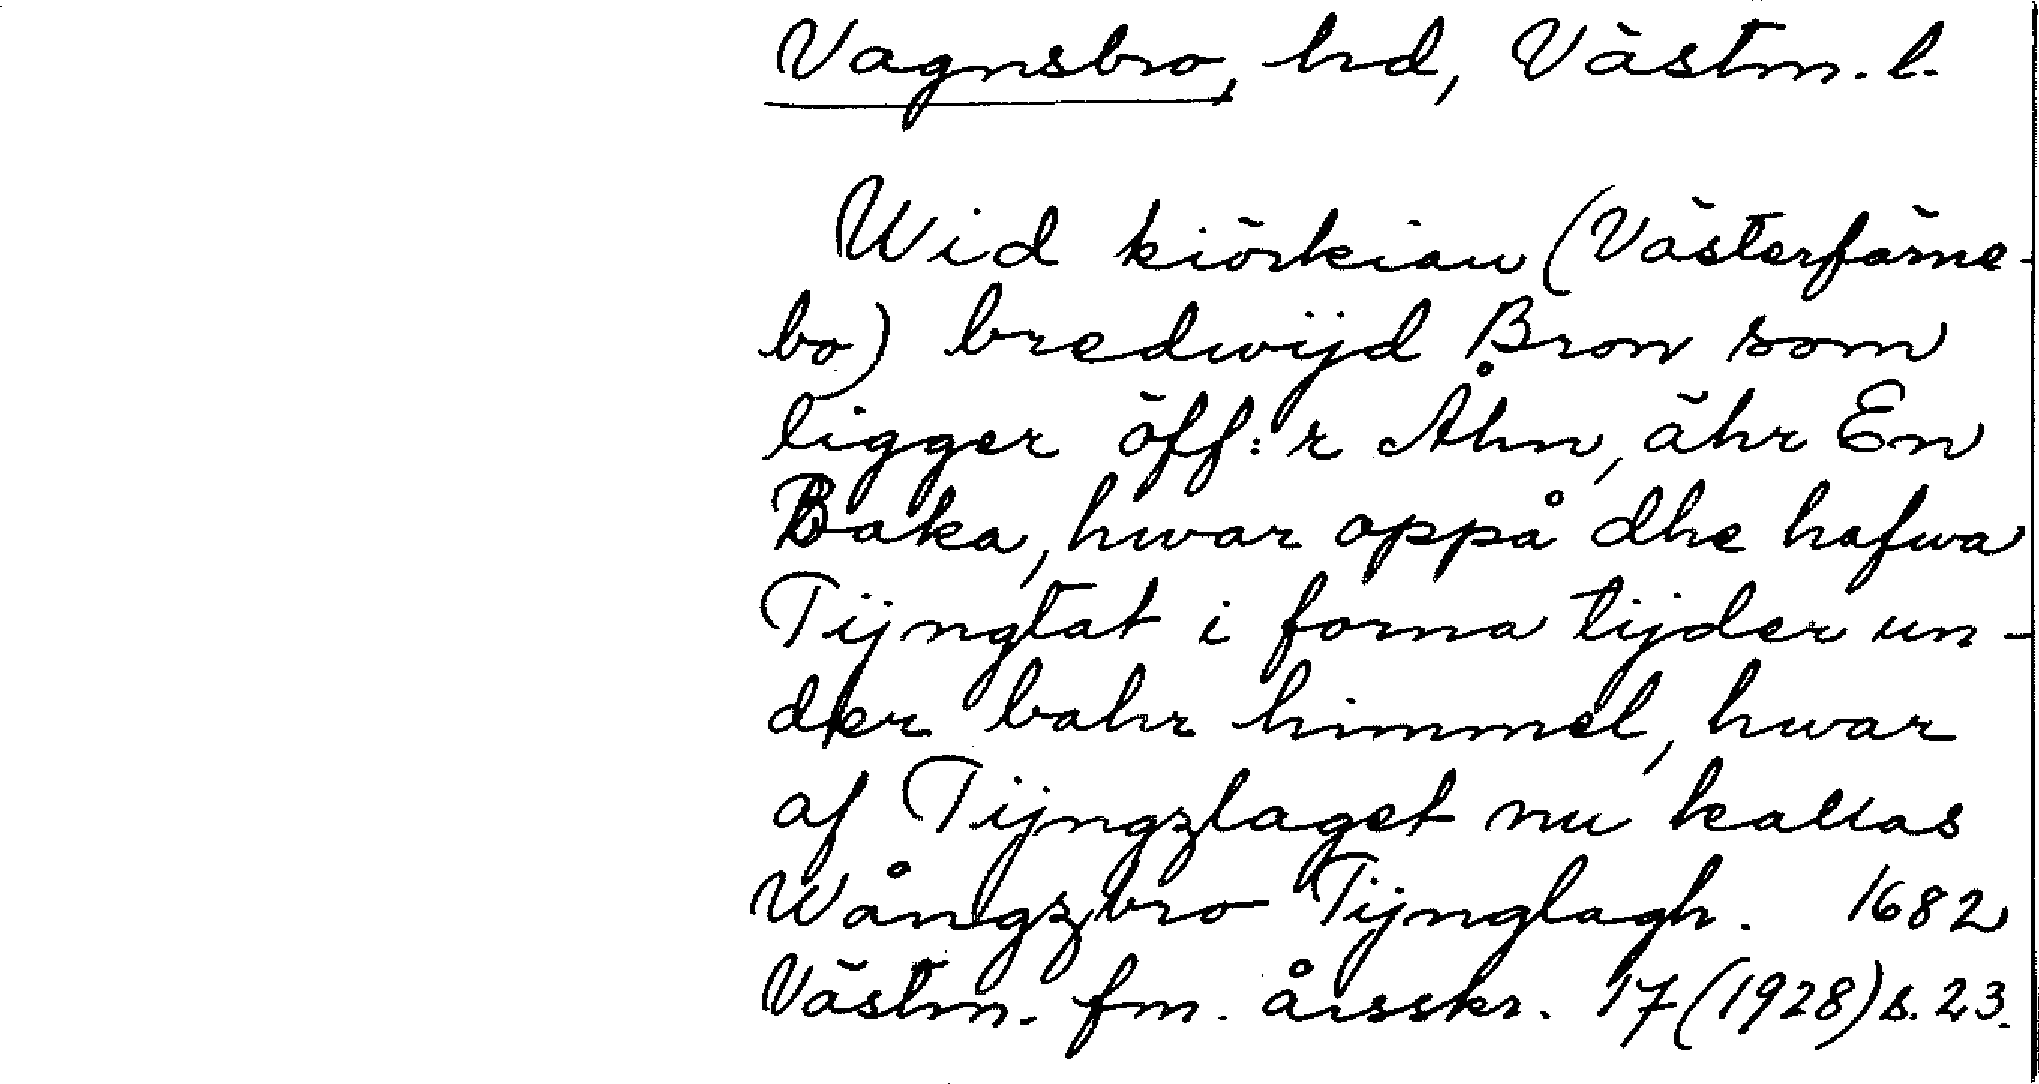 Vagnsbro, hd, Västm. l.
Wid kiörkian (Västerfärne-
bo) bredwijd Bron som
ligger öff:r Åhn, ähr En
Baka, hwar oppå dhe hafwa
Tijngtat i forna tijder un-
der bahr himmel, hwar
af Tijngzlaget nu kallas
Wångzbro Tijnglagh. 1682
Västm. fm. årsskr. 17 (1928) s. 23.